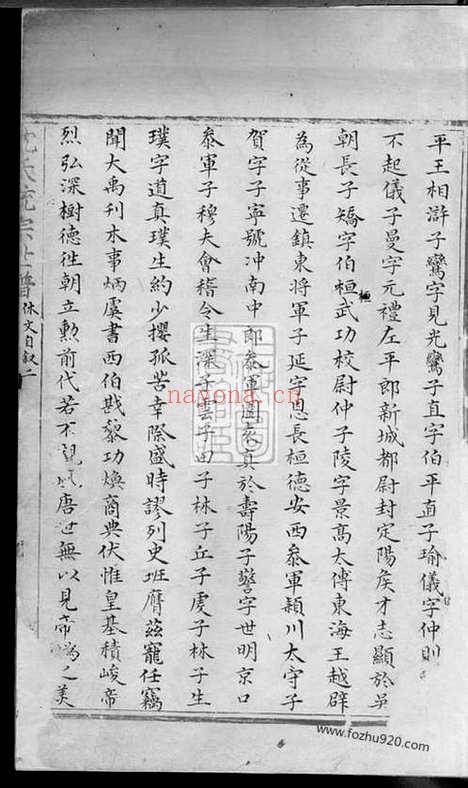 平王相滸子鸞字見光鸞子直字伯平直子瑜儀字仲則
不起儀子曼字元禮左平郎新城都尉封定陽矦才志顯於吳
朝長子矯字伯桓武功校尉仲子陵字景高太傅東海王越辟
為從事遷鎮東將軍子延字思長桓德安西叅軍頴川太守子
賀字子寧號冲南中郎叅軍圍袁真於壽陽子警字世明京口
叅軍子穆夫會稽令生深子雲子田子林子丘子虔子林子生
璞字道真璞生約少攖孤苦幸除盛時謬列史班膺茲寵任竊
聞大禹刊木事炳虞書西伯戡黎功煥商典伏惟皇基積峻帝
烈弘深樹德往朝立勳前代若不觀 唐世無以見帝 之美
沈氏統宗 譜 休文自叙二
nayona.cn
www.fozhu920.com